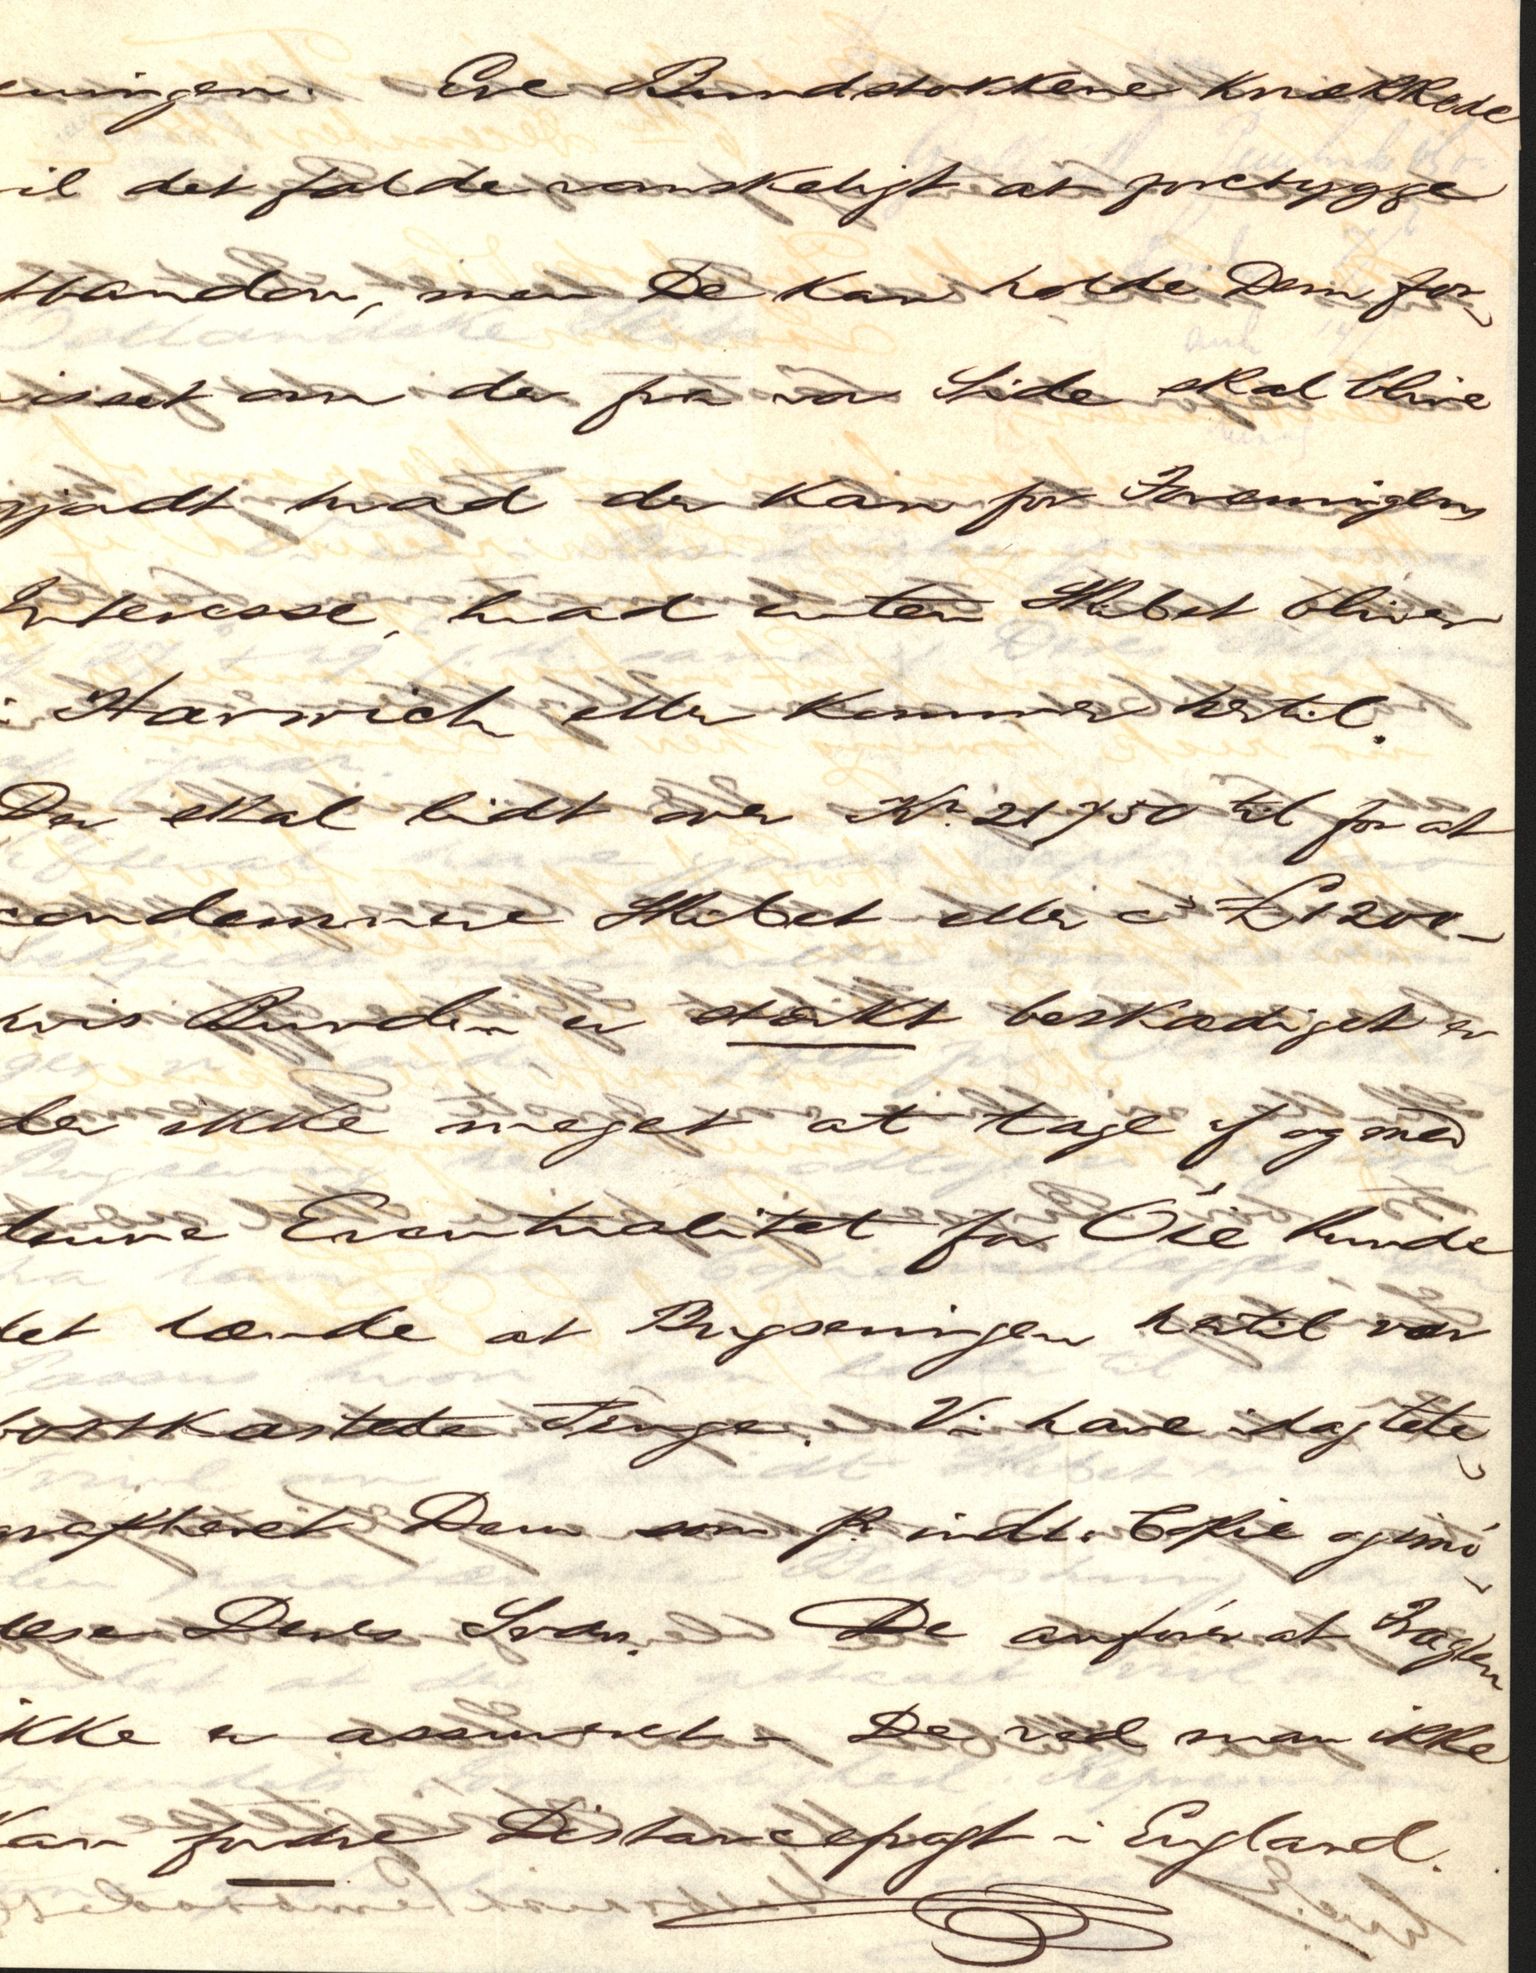 eningen. Ere Bundstokkene knækkede
il det falde vanskeligt at forebygge
Standen, men De kan holde Dem for-
isset om der fra vor Side skal blive
gjødt hvad der kan for Foreningens
Interesse, hvad enten Skibet bliver
i Harwich eller kommer hertil.
Der skal lidt over Kr. 21750 til for at
condemnere Skibet eller ca £1200-
hvis Bunden er stærkt beskadiget er
der ikke meget at tage af og med
denne Eventualitet for Öie kunde
det hænde at Bugseringen hertil var
bortkastede Penge. Vi have idag tele-
grapheret Dem som pr. indl. Copie og imö-
dese Deres Svar. De anförer at Fragten
ikke er assureret - De ved man ikke
kan fordre Distancefragt i England.